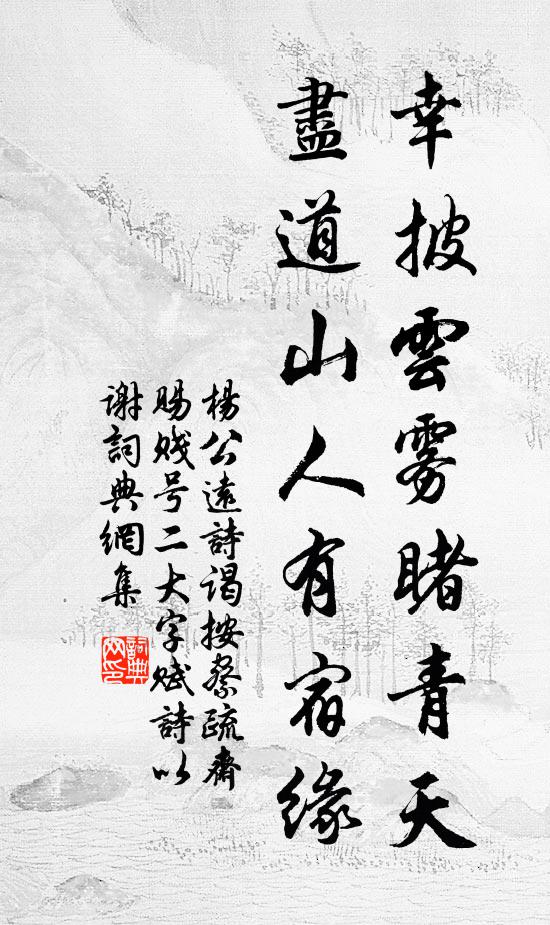 幸披雲霧睹青天
盡道山人有宿緣
楊公遠詩謁按察疏齋
賜賤号二大字賦詩以
謝詞典網集
詞典
网印